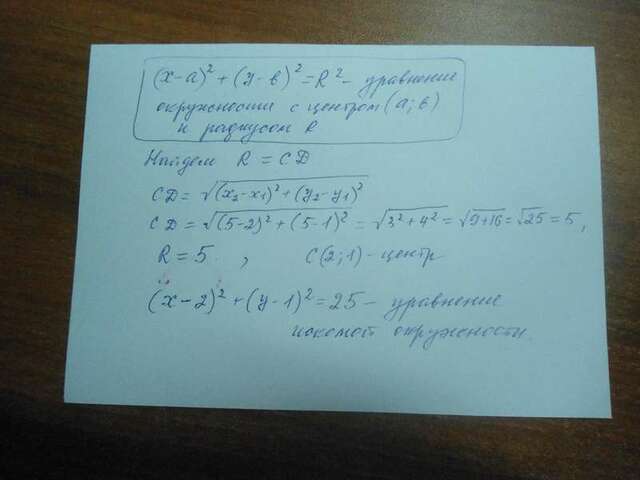 (x-a)² + (y-в)² = R² - уравнение
окружности с центром (a; в)
и радиусом R
Найдем R = CD
CD = √(x₂-x₁)² + (y₂-y₁)²
CD = √(5-2)² + (5-1)² = √3² + 4² = √9+16 = √25 = 5,
R = 5 , C(2;1) - центр
(x-2)² + (y-1)² = 25 - уравнение
искомой окружности.